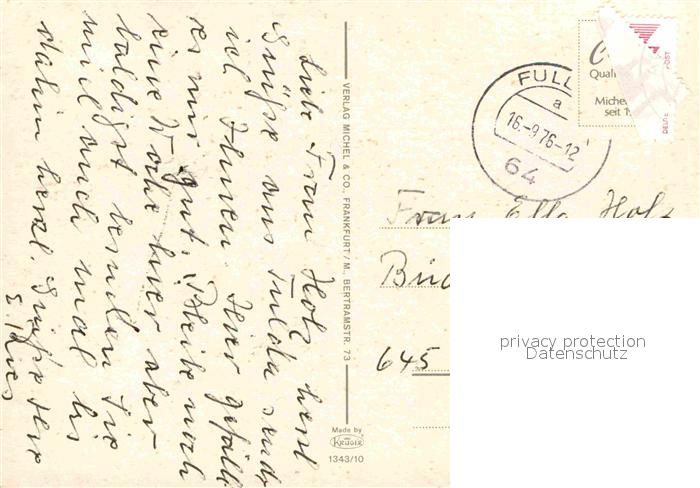 Liebe Frau Holz herzl.
Grüße aus Fulda sende
ich Ihnen. Hier gefällt
es mir gut. Bleibe noch
eine Woche hier aber
baldigst besuchen Sie
mich auch mal bis
dahin herzl. Grüße Ihre
VERLAG MICHEL & CO., FRANKFURT/M., BERTRAMSTR. 73
Made by
KRÜGER
1343/10
FULD
a
16.-9.76-12
64
Quali
Miche
seit 1
POST
Frau Ella Holz
Büd
645
privacy protection
Datenschutz